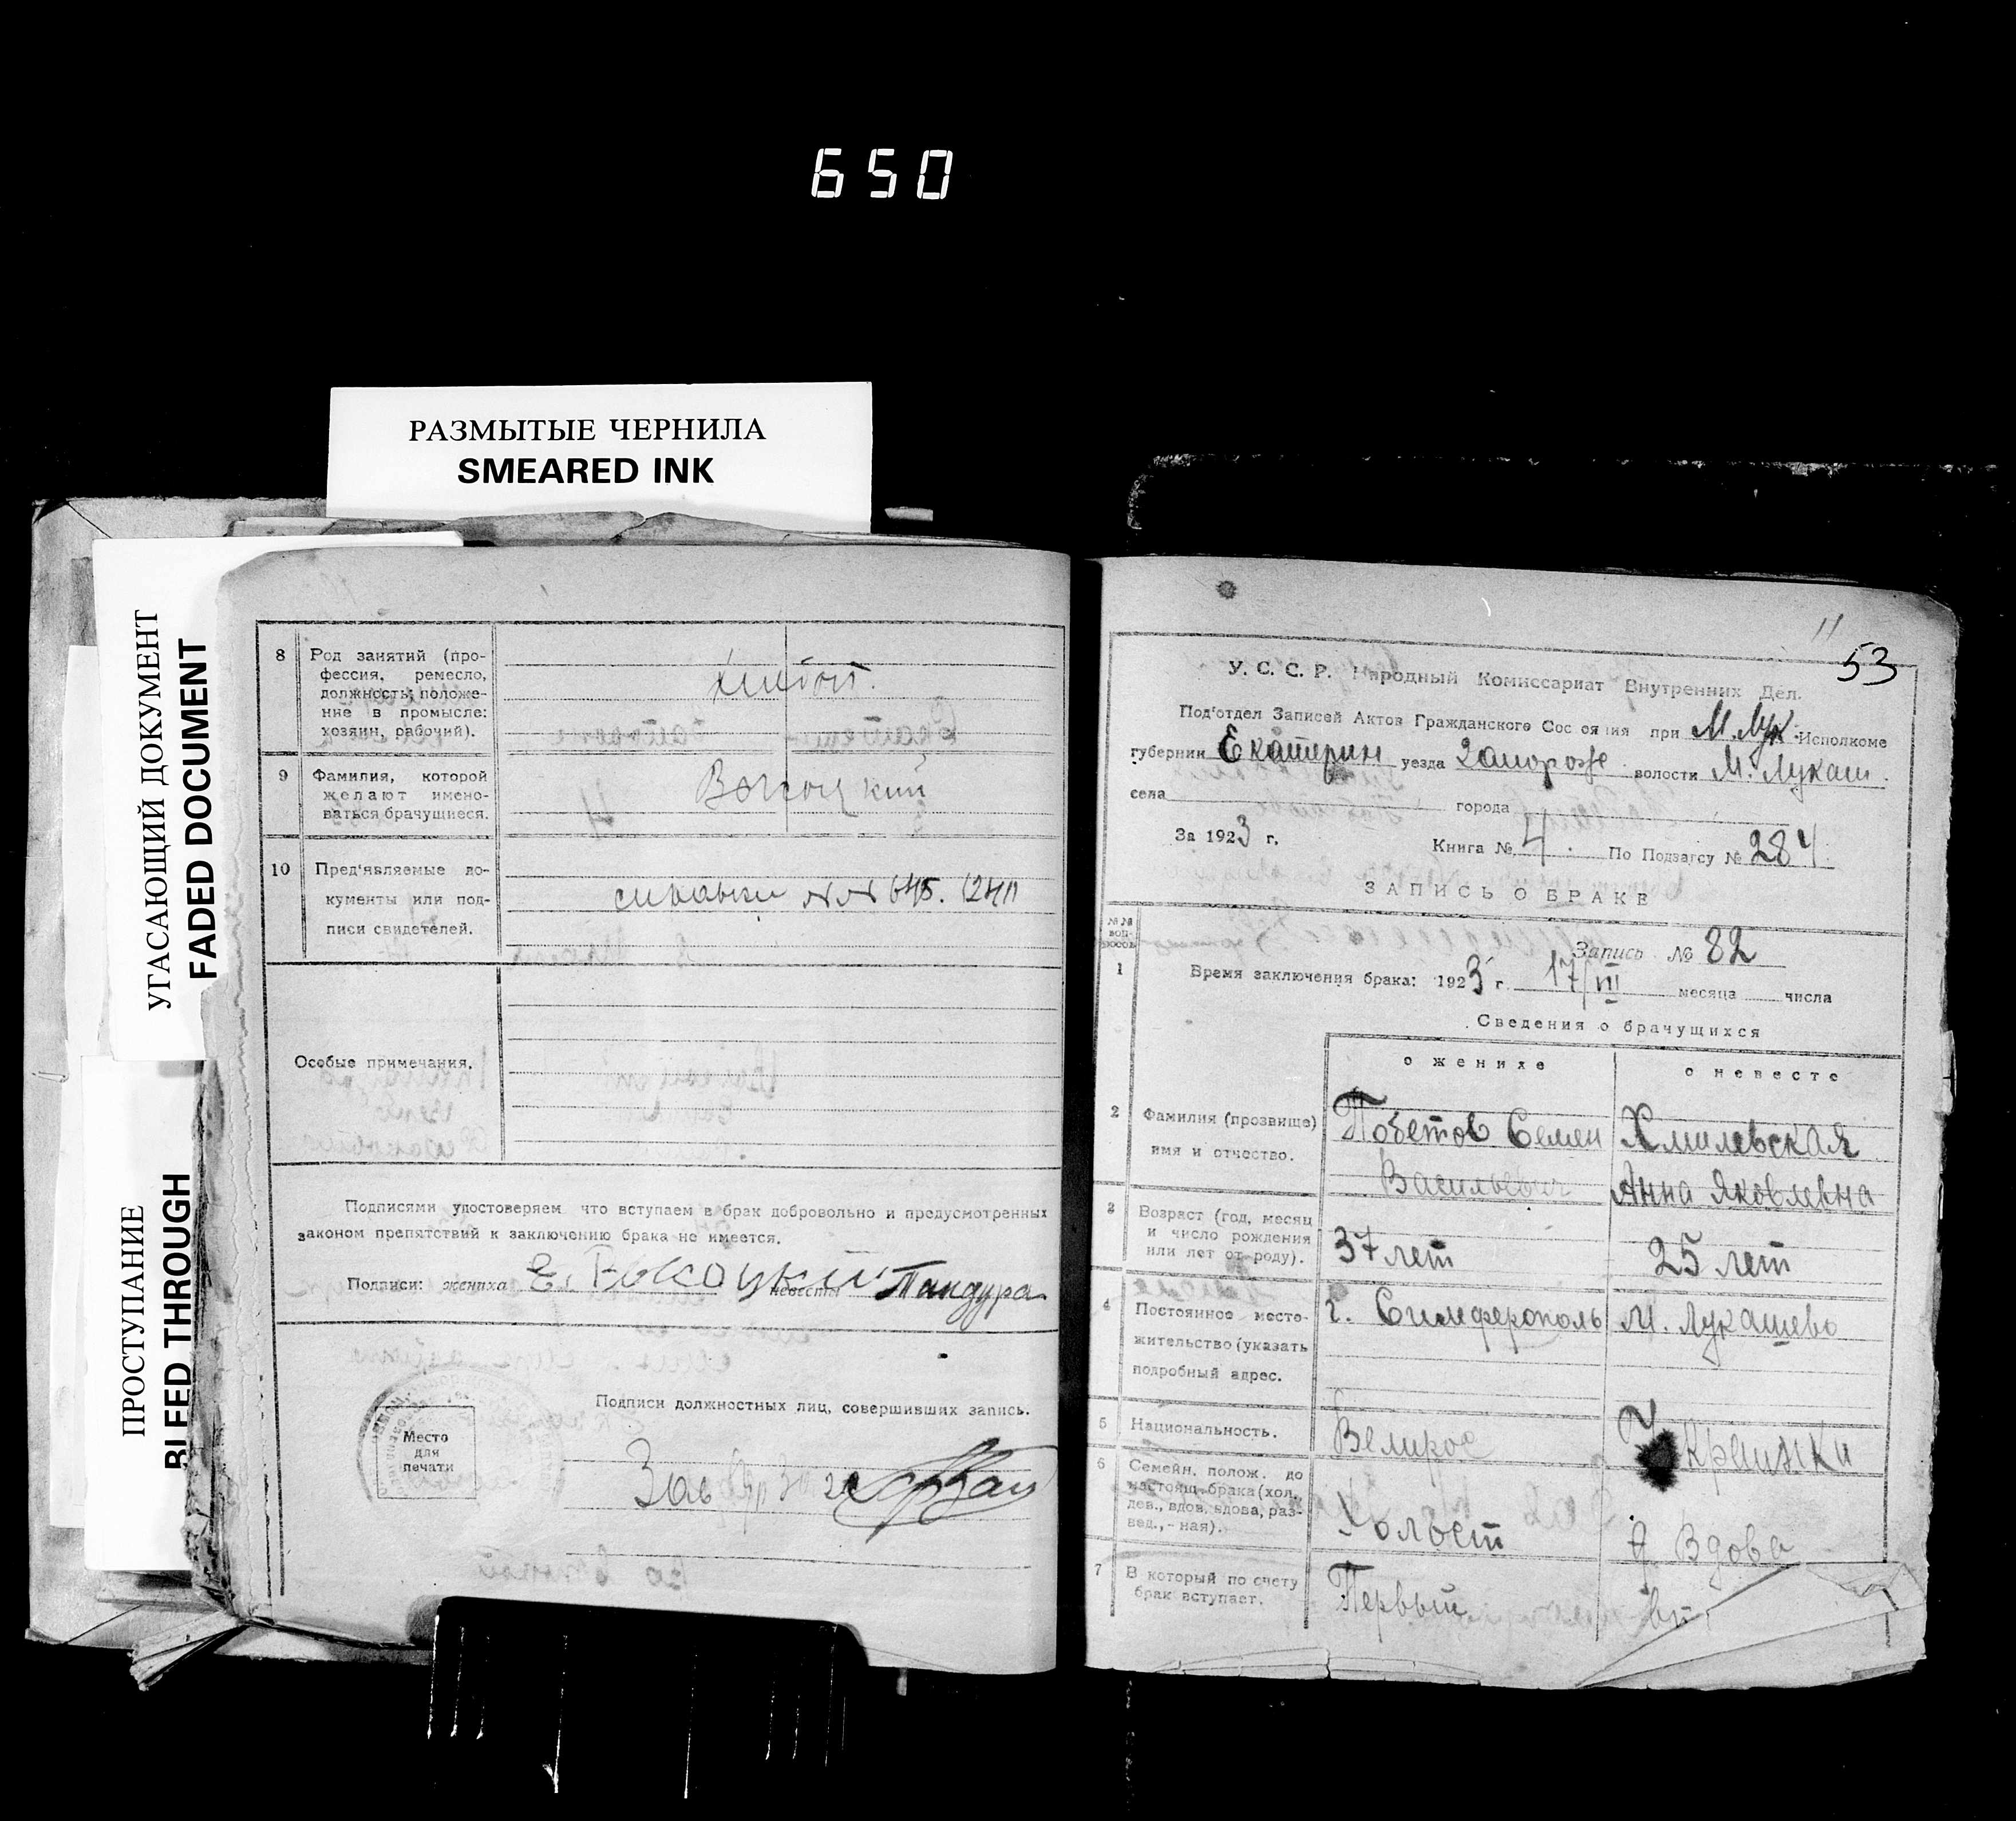 650
РАЗМЫТЫЕ ЧЕРНИЛА
SMEARED INK
УГАСАЮЩИЙ ДОКУМЕНТ
FADED DOCUMENT
ПРОСТУПАНИЕ
BLEED THROUGH
8 Род занятий (про-
фессия, ремесло,
должность; положе-
ние в промысле:
хозяин, рабочий).
хлебоп.
9 Фамилия, которой
желают имено-
ваться брачущиеся.
10 Пред'являемые до-
кументы или под-
писи свидетелей.
справки №№ 645.
Особые примечания.
Подписями удостоверяем что вступаем в брак добровольно и предусмотренных
законом препятствий к заключению брака не имеется.
Подписи: жениха Е. невесты Пандура
Подписи должностных лиц, совершивших запись.
Место
для
печати
Зав
11
53
У. С. С. Р. Народный Комиссариат Внутренних Дел.
Под'отдел Записей Актов Гражданского Состояния при М. Лук. Исполкоме
губернии Екатерин уезда Запорож волости М. Лукаш.
села города
За 1923 г. Книга № 4. По Подзагсу № 284
ЗАПИСЬ О БРАКЕ
№№ вопросов
Запись № 82
1 Время заключения брака: 1923 г. 17/III месяца числа
Сведения о брачущихся
о женихе о невесте
2 Фамилия (прозвище)
имя и отчество.
Победов Семен Хмилевская
Васильевич Анна Яковлевна
3 Возраст (год, месяц
и число рождения
или лет от роду).
37 лет 25 лет
4 Постоянное место-
жительство (указать
подробный адрес.
г. Симферополь М. Лукашево
5 Национальность.
Велирос Украинки
6 Семейн. полож. до
настоящ. брака (хол.,
дев., вдов, вдова, раз-
вед., - ная).
Холост Вдова
7 В который по счету
брак вступает.
Первый вт